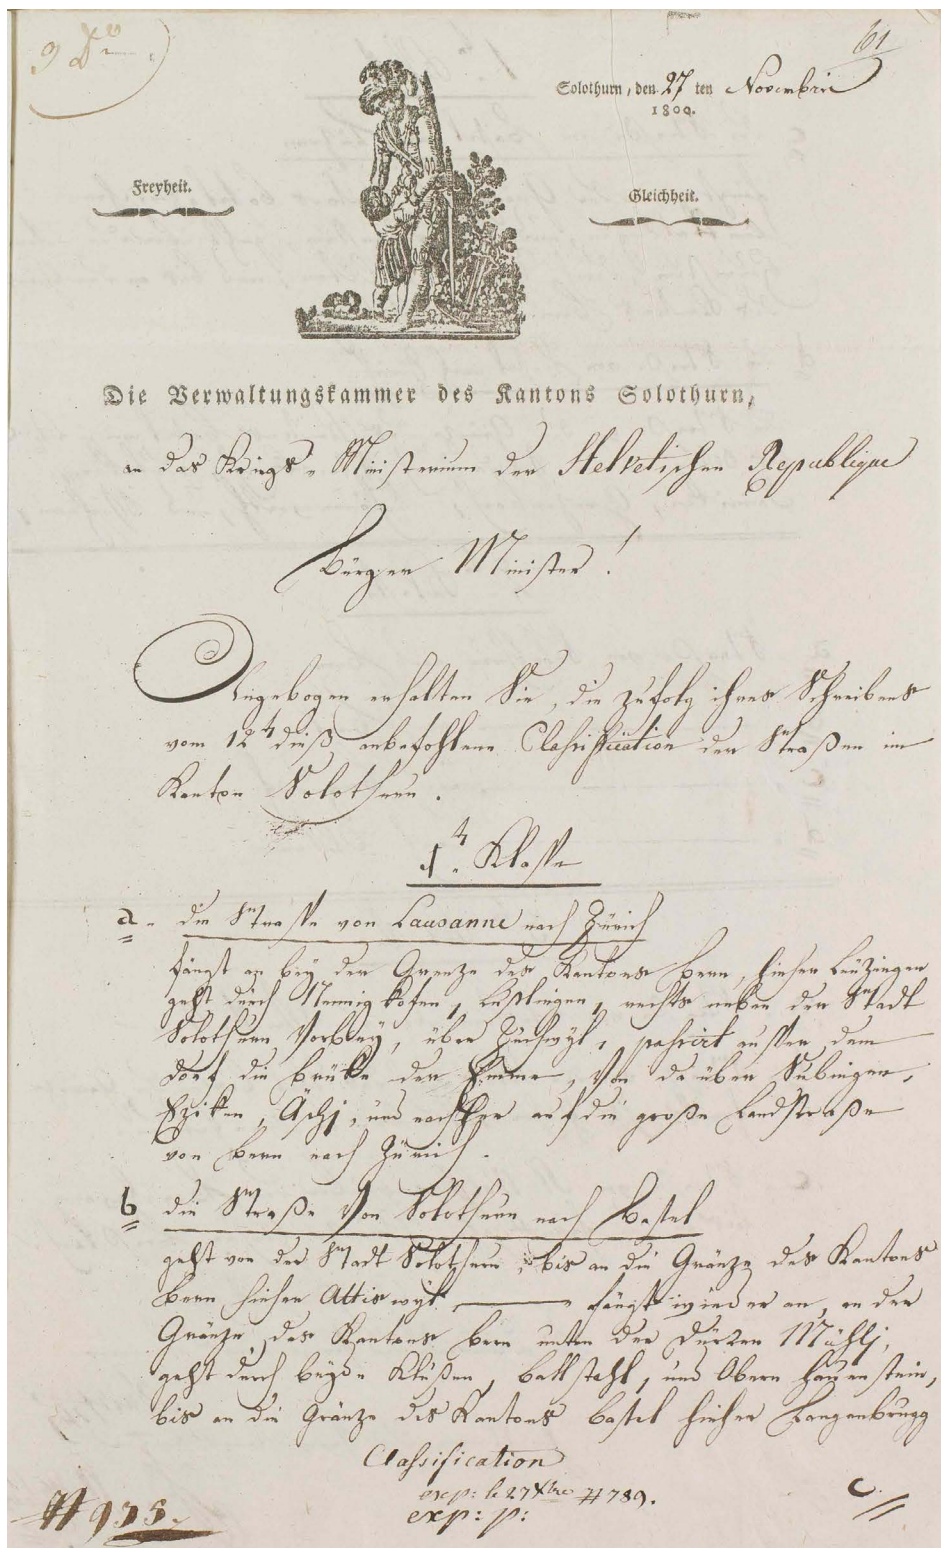 9 Xbr
61
Solothurn, den 27 ten Novembris
1800.
Freyheit.
Gleichheit.
Die Verwaltungskammer des Kantons Solothurn,
an das Kriegs-Ministerium der Helvetischen Republique
Bürger Minister!
Angebogen erhalten Sie, die zufolg ihres Schreibens
vom 12t dieß anbefohlene Classification der Straßen im
Kanton Solothurn.
1t. Klasse
a. die Strasse von Lausanne nach Zürich
fängt an bey der Grenze des Kantons Bern, hieher Leuzingen
geht durch Nennigkofen, Lüßlingen, rechts neben der Stadt
Solothurn vorbey, über Zuchwyl, passirt ausser dem
Dorf die Brüke der Emme, von da über Subingen,
Eziken, Äschj, und nachher auf die große Landstraße
von Bern nach Zürich.
b die Straße von Solothurn nach Bassel
geht von der Stadt Solothurn bis an die Gränze des Kantons
Bern hieher Attiswyl, fängt wieder an, an der
Gränze des Kantons Bern unten der Dürren Mühlj,
geht durch beyde Klußen, Ballstahl, und Obern Hauenstein,
bis an die Gränze des Kantons Bassel hieher Langenbrugg
Classification
exp: le 27 Xbre # 789.
exp: p:
c.
# 938.